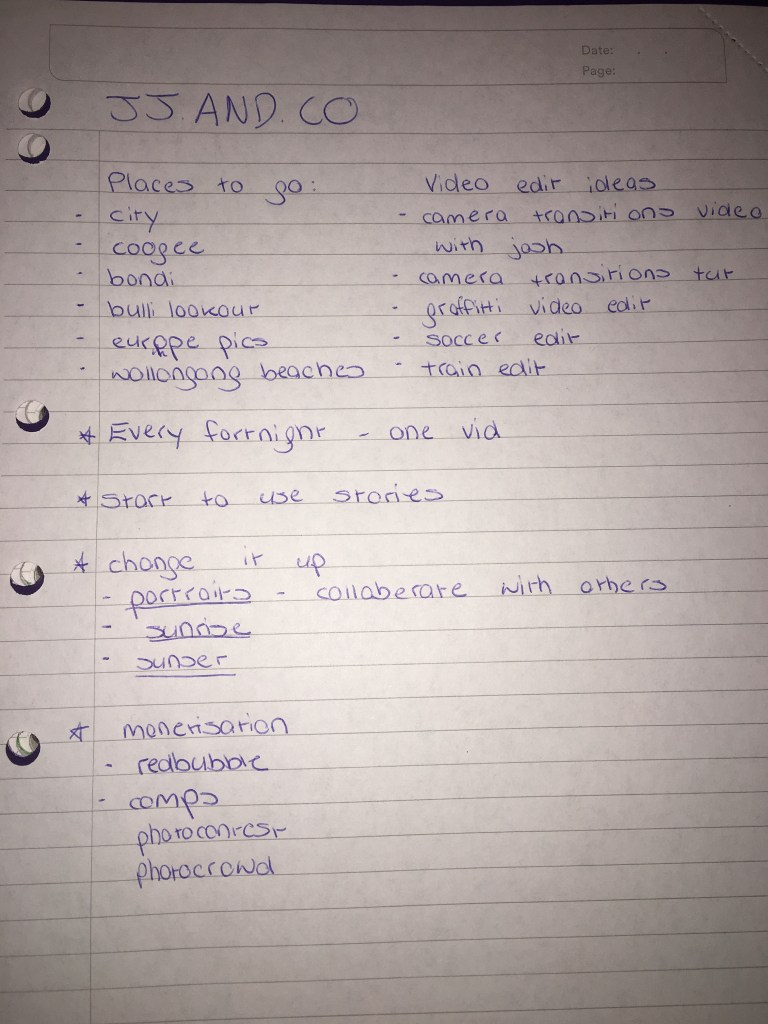 Date: . .
Page:
JJ. AND. CO
Places to go:
- city
- coogee
- bondi
- bulli lookout
- europe pics
- wollongong beaches
Video edit ideas
- camera transitions video
with josh
- camera transitions tut
- graffitti video edit
- soccer edit
- train edit
* Every fortnight - one vid
* Start to use stories
* change it up
- portraits - collaberate with others
- sunrise
- sunset
* monetisation
- redbubble
- comps
photocontest
photocrowd